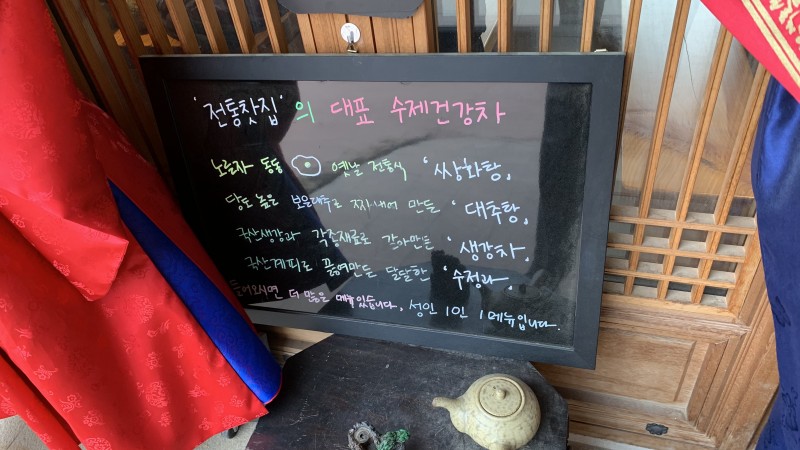 '전통찻집'의 대표 수제건강차
노른자 동동 옛날 전통식 '쌍화탕,
당도 높은 보은대추로 찌내어 만든 '대추탕,
국산생강과 각종재료로 갈아만든 '생강차,
국산계피로 끓여만든 달달한 '수정과,
들어오시면 더 많은 메뉴있습니다. 성인 1인 1메뉴입니다.